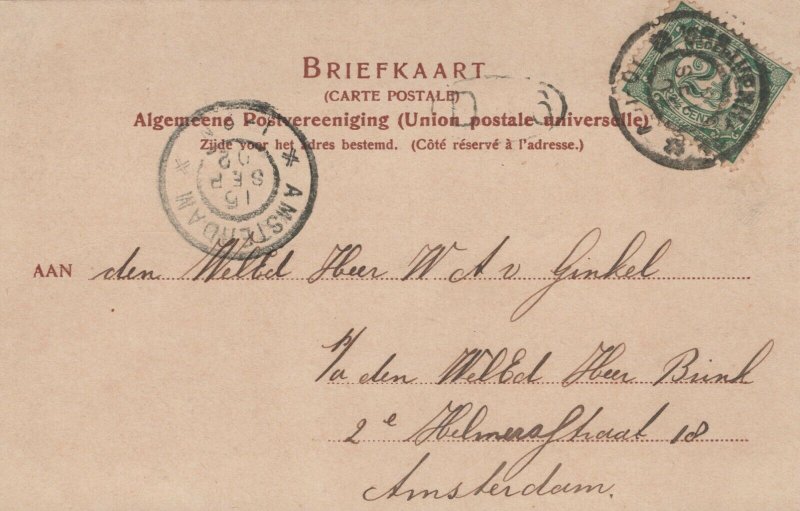 BRIEFKAART
(CARTE POSTALE)
Algemeene Postvereeniging (Union postale universelle)
Zijde voor het adres bestemd. (Côté réservé à l'adresse.)
AMSTERDAM
15 SEP
AAN den WelEd Heer W A v Ginkel
p/a den WelEd Heer Brink
2e Helmersstraat 18
Amsterdam.